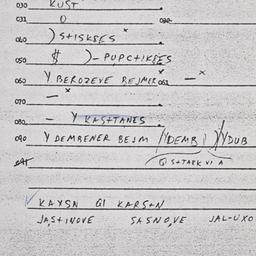 030 KUST
031 0 032
040 ) S+ISKSES
050 $ )-PUPC+IKEES
060 Y BEROZEVE REJMER 061 —
070 —
080 — Y KAS+TANES
090 Y DEMBENER BEJM /(DEMB) Y DUB
GI S+TARK VI A
KAYSN GI KARS+N
JAS+INOVE SASNOVE JAL-UXO